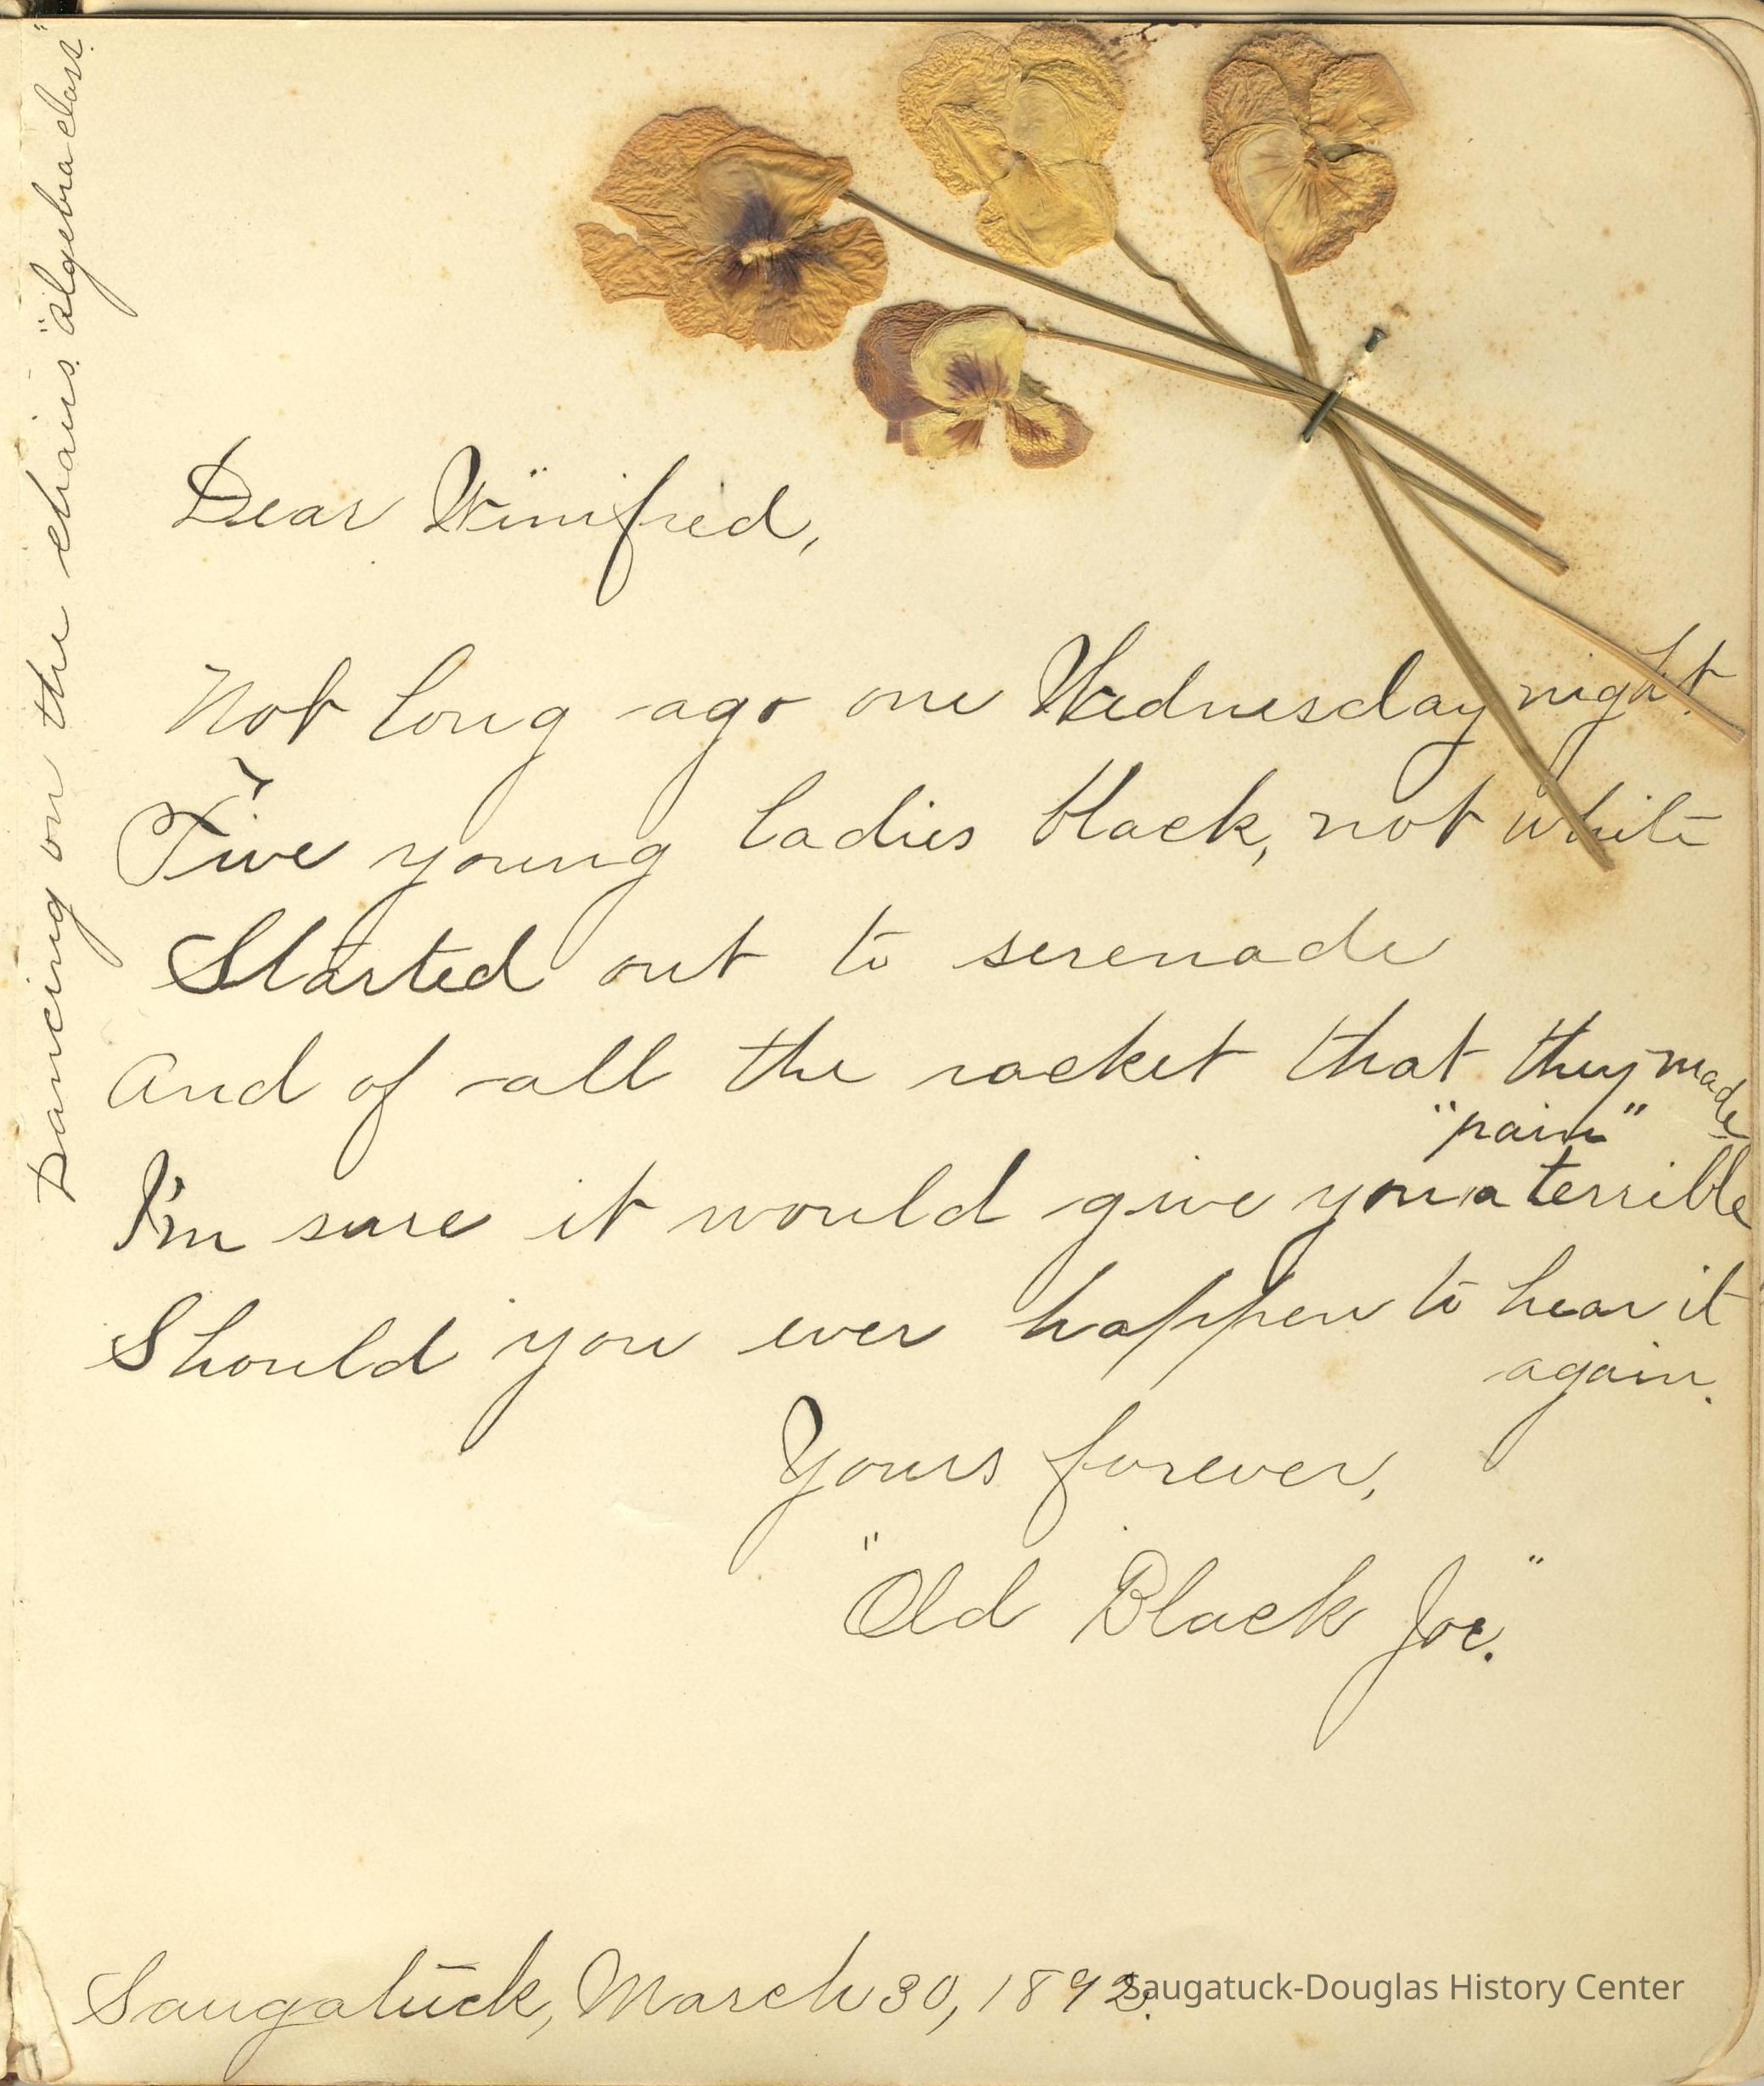 Dancing on the chairs. "Algebra class."
Dear Winifred,
Not long ago one Wednesday night.
Five young ladies black, not white
Started out to serenade
And of all the racket that they made
"pain"
I'm sure it would give you a terrible
Should you ever happen to hear it
again.
Yours forever,
"Old Black Joe."
Saugatuck, March 30, 1892.
Saugatuck-Douglas History Center